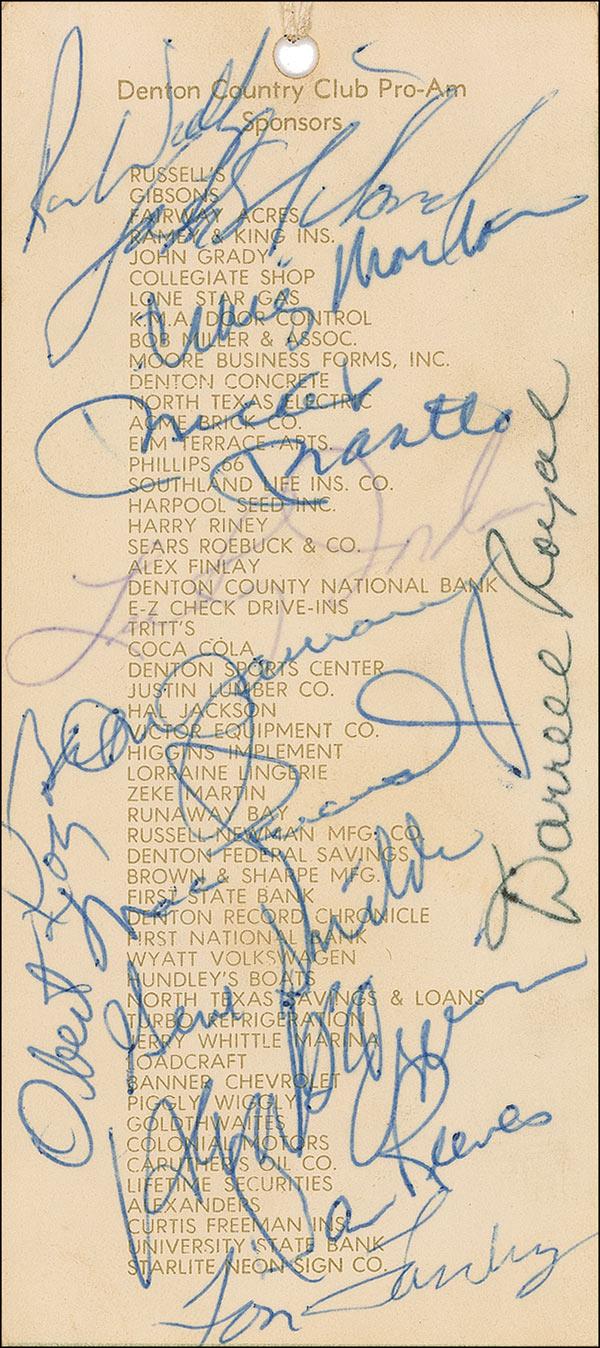 Denton Country Club Pro-Am
Sponsors
RUSSELL'S
GIBSONS
FAIRWAY ACRES
RAMEY & KING INS.
JOHN GRADY
COLLEGIATE SHOP
LONE STAR GAS
K.M.A. DOOR CONTROL
BOB MILLER & ASSOC.
MOORE BUSINESS FORMS, INC.
DENTON CONCRETE
NORTH TEXAS ELECTRIC
ACME BRICK CO.
Mickey
Mantle
ELM TERRACE ARTS
PHILLIPS 66
SOUTHLAND LIFE INS. CO.
HARPOOL SEED INC.
HARRY RINEY
SEARS ROEBUCK & CO.
ALEX FINLAY
DENTON COUNTY NATIONAL BANK
E-Z CHECK DRIVE-INS
TRITT'S
COCA COLA
DENTON SPORTS CENTER
JUSTIN LUMBER CO.
HAL JACKSON
VICTOR EQUIPMENT CO.
HIGGINS IMPLEMENT
LORRAINE LINGERIE
ZEKE MARTIN
RUNAWAY BAY
RUSSELL-NEWMAN MFG. CO.
DENTON FEDERAL SAVINGS
BROWN & SHARPE MFG.
FIRST STATE BANK
DENTON RECORD CHRONICLE
FIRST NATIONAL BANK
WYATT VOLKSWAGEN
HUNDLEY'S BOATS
NORTH TEXAS SAVINGS & LOANS
TURBO REFRIGERATION
JERRY WHITTLE MARINA
LOADCRAFT
BANNER CHEVROLET
PIGGLY WIGGLY
GOLDTHWAITES
COLONIAL MOTORS
CARUTHERS OIL CO.
LIFETIME SECURITIES
ALEXANDERS
CURTIS FREEMAN INS.
UNIVERSITY STATE BANK
STARLITE NEON SIGN CO.
Darrell Royal
Lee Roy Jordan
Obert
Gene
Dan Reeves
Tom Landry